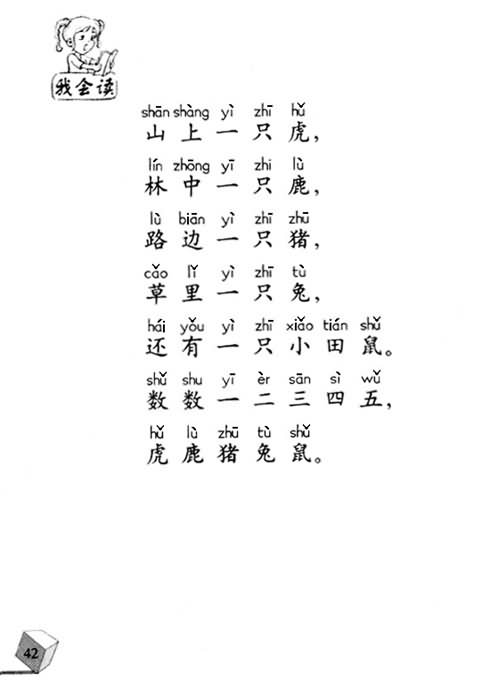 我会读
shān shàng yì zhī hǔ
山上一只虎，
lín zhōng yī zhi lù
林中一只鹿，
lù biān yì zhī zhū
路边一只猪，
cǎo lǐ yì zhī tù
草里一只兔，
hái yǒu yì zhī xiǎo tián shǔ
还有一只小田鼠。
shǔ shu yī èr sān sì wǔ
数数一二三四五，
hǔ lù zhū tù shǔ
虎鹿猪兔鼠。
42